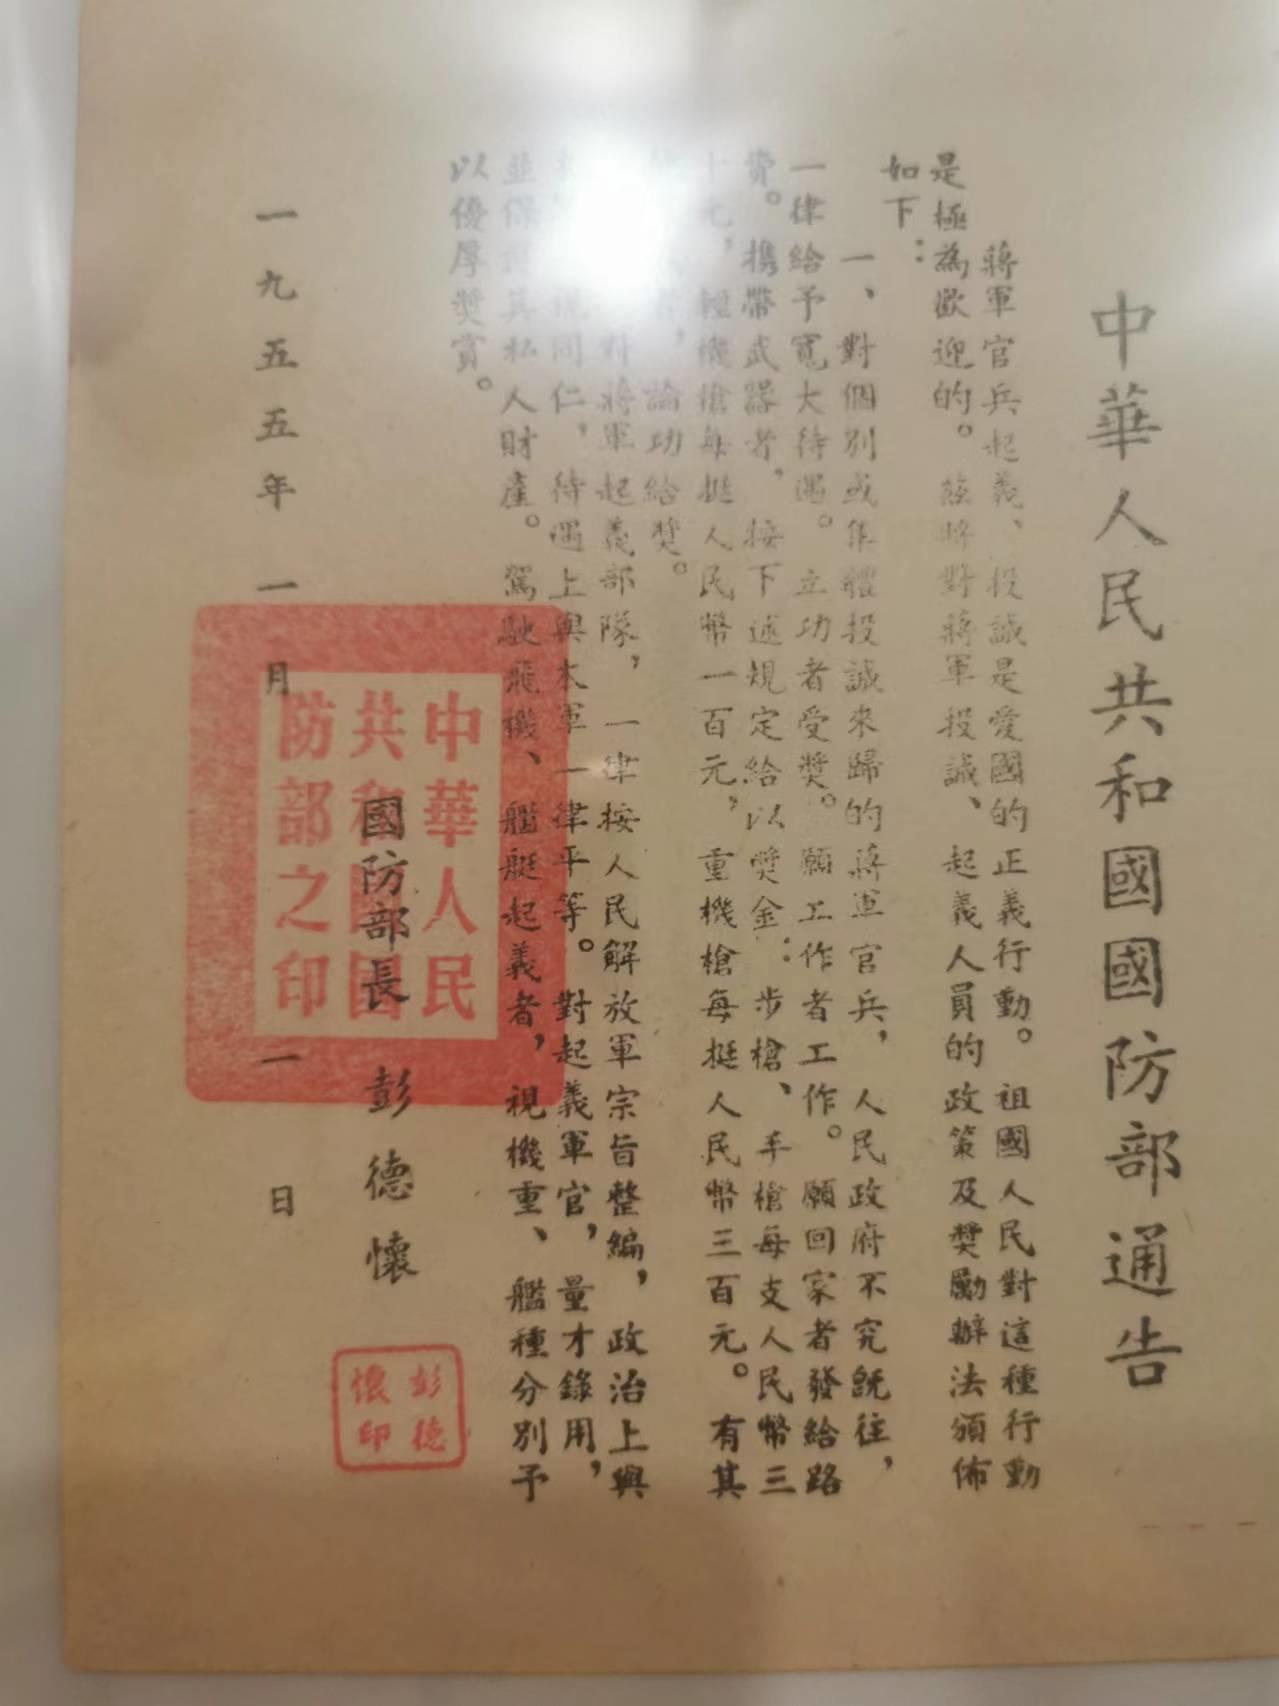 中華人民共和國國防部通告
蔣軍官兵起義、投誠是愛國的正義行動。祖國人民對這種行動
是極為歡迎的。茲將對蔣軍投誠、起義人員的政策及獎勵辦法頒佈
如下：
一、對個別或集體投誠來歸的蔣軍官兵，人民政府不究既往，
一律給予寬大待遇。立功者受獎。願工作者工作。願回家者發給路
費。攜帶武器者，按下述規定給以獎金：步槍、手槍每支人民幣三
十元，輕機槍每挺人民幣一百元，重機槍每挺人民幣三百元。有其
論功給獎。
對蔣軍起義部隊，一律按人民解放軍宗旨整編，政治上與
視同仁，待遇上與本軍一律平等。對起義軍官，量才錄用，
並保證其私人財產。駕駛飛機、艦艇起義者，視機重、艦種分別予
以優厚獎賞。
國防部長 彭德懷
一九五五年一月一日
中華人民
共和國國
防部之印
彭德
懷印